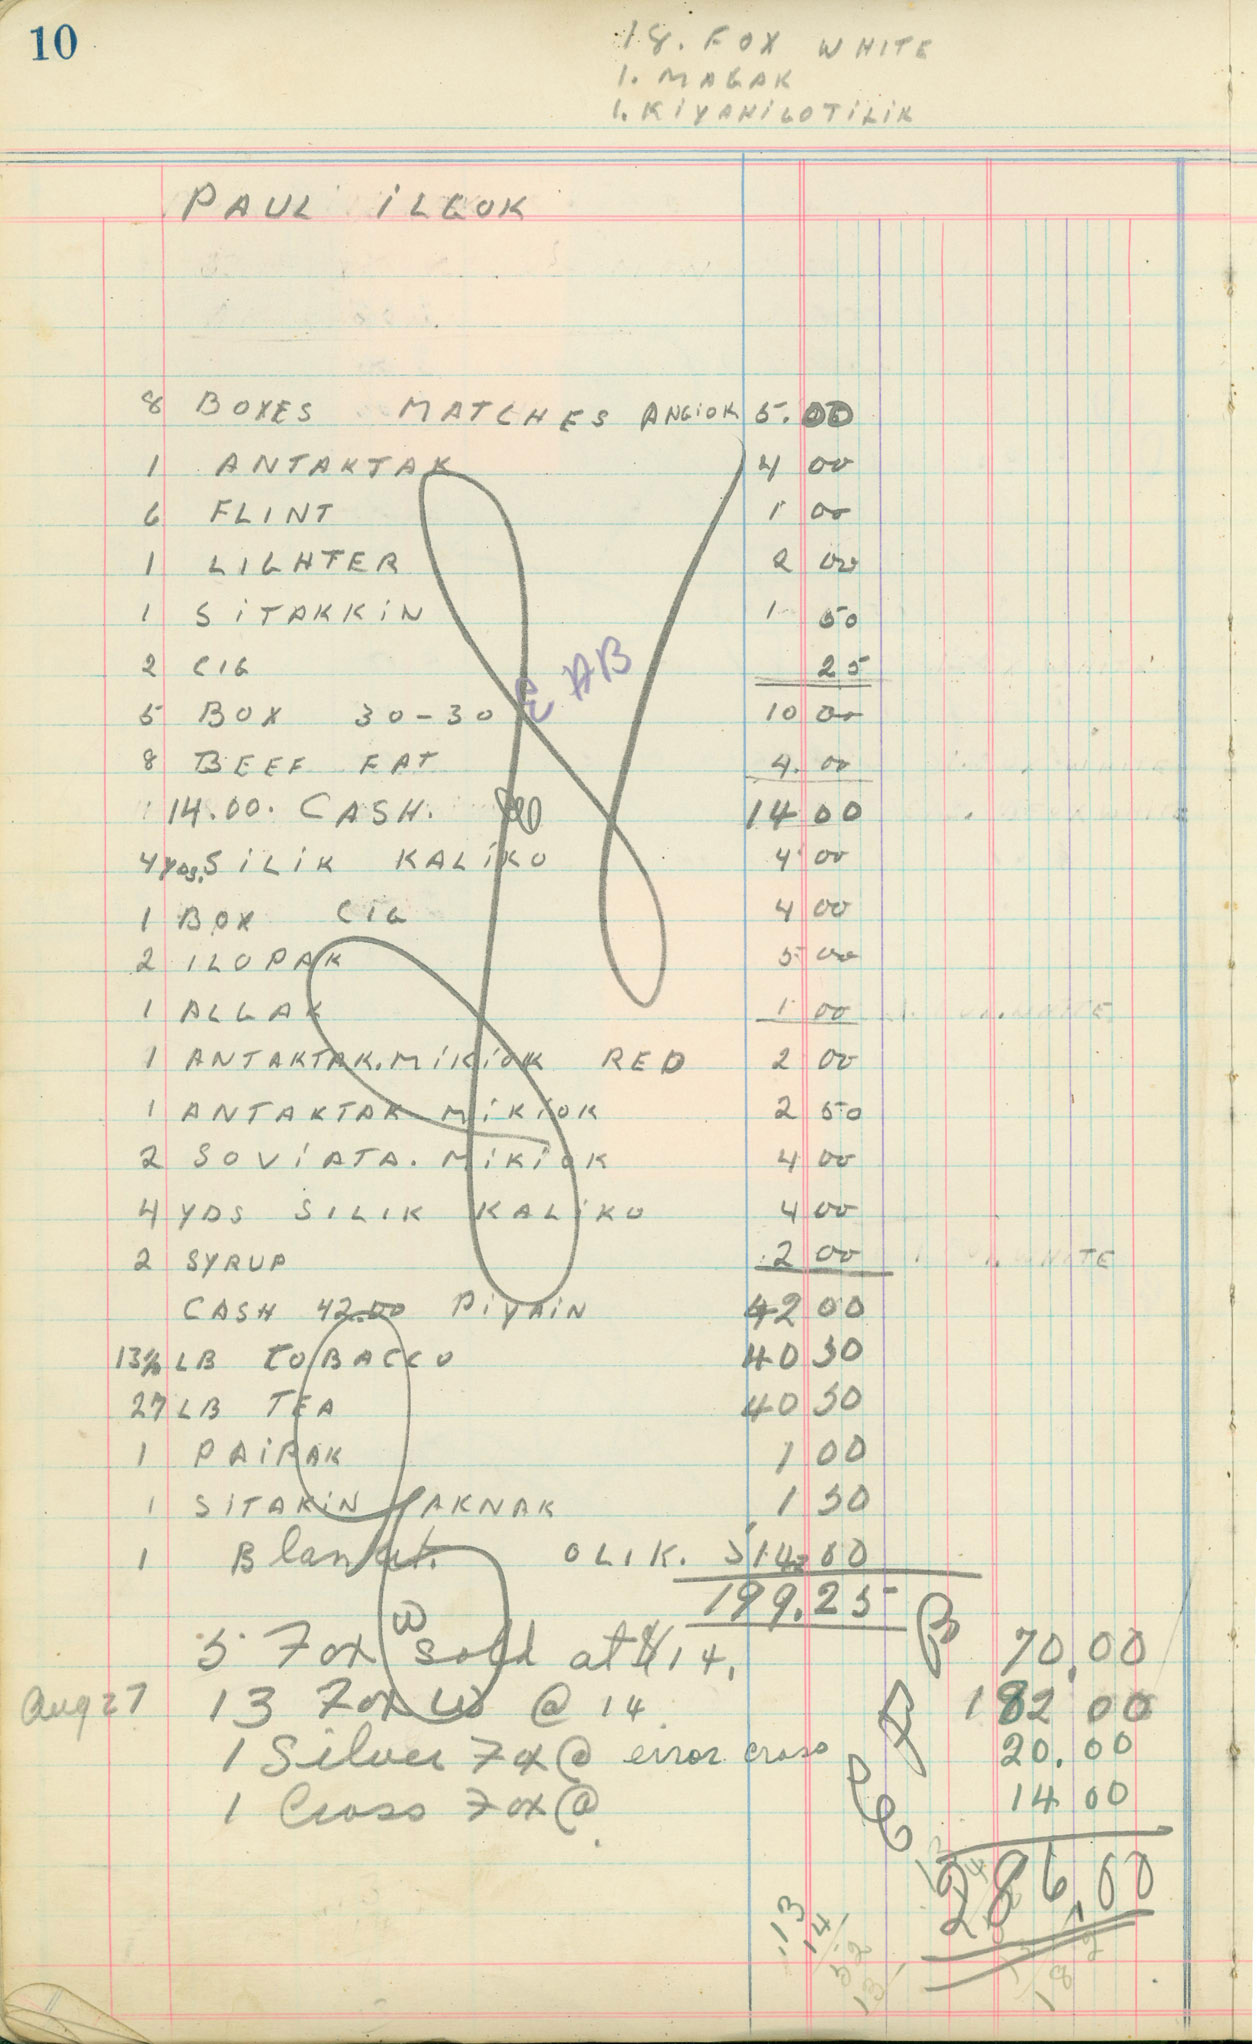 10
18. FOX WHITE
1. MAGAK
1. KIYANIGOTILIK
PAUL ILGOK
8 BOXES MATCHES ANGIOK 5.00
1 ANTAKTAK 4 00
6 FLINT 1 00
1 LIGHTER 2 00
1 SITAKKIN 1 50
2 CIG 25
EAB
5 BOX 30-30 10 00
8 BEEF FAT 4.00
14.00. CASH. 14 00
4 yds. SILIK KALIKO 4 00
1 BOX CIG 4 00
2 ILOPAK 5 00
1 ALLAK 1 00
1 ANTAKTAK.MIKIOK RED 2 00
1 ANTAKTAK MIKIOK 2 50
2 SOVIATA. MIKIOK 4 00
4 YDS SILIK KALIKO 4 00
2 SYRUP 2 00
CASH 42.00 PIYAIN 42 00
13½ LB TOBACCO 40 50
27 LB TEA 40 50
1 PAIPAK 1 00
1 SITAKIN AKNAK 1 50
1 Blanket. OLIK. $14.00
199.25
5 Fox W sold at $14. 70.00
Aug 27 13 Fox W @ 14 182 00
1 Silver Fox @ error cross 20.00
1 Cross Fox @ 14 00
286.00
13
14
52
13
182